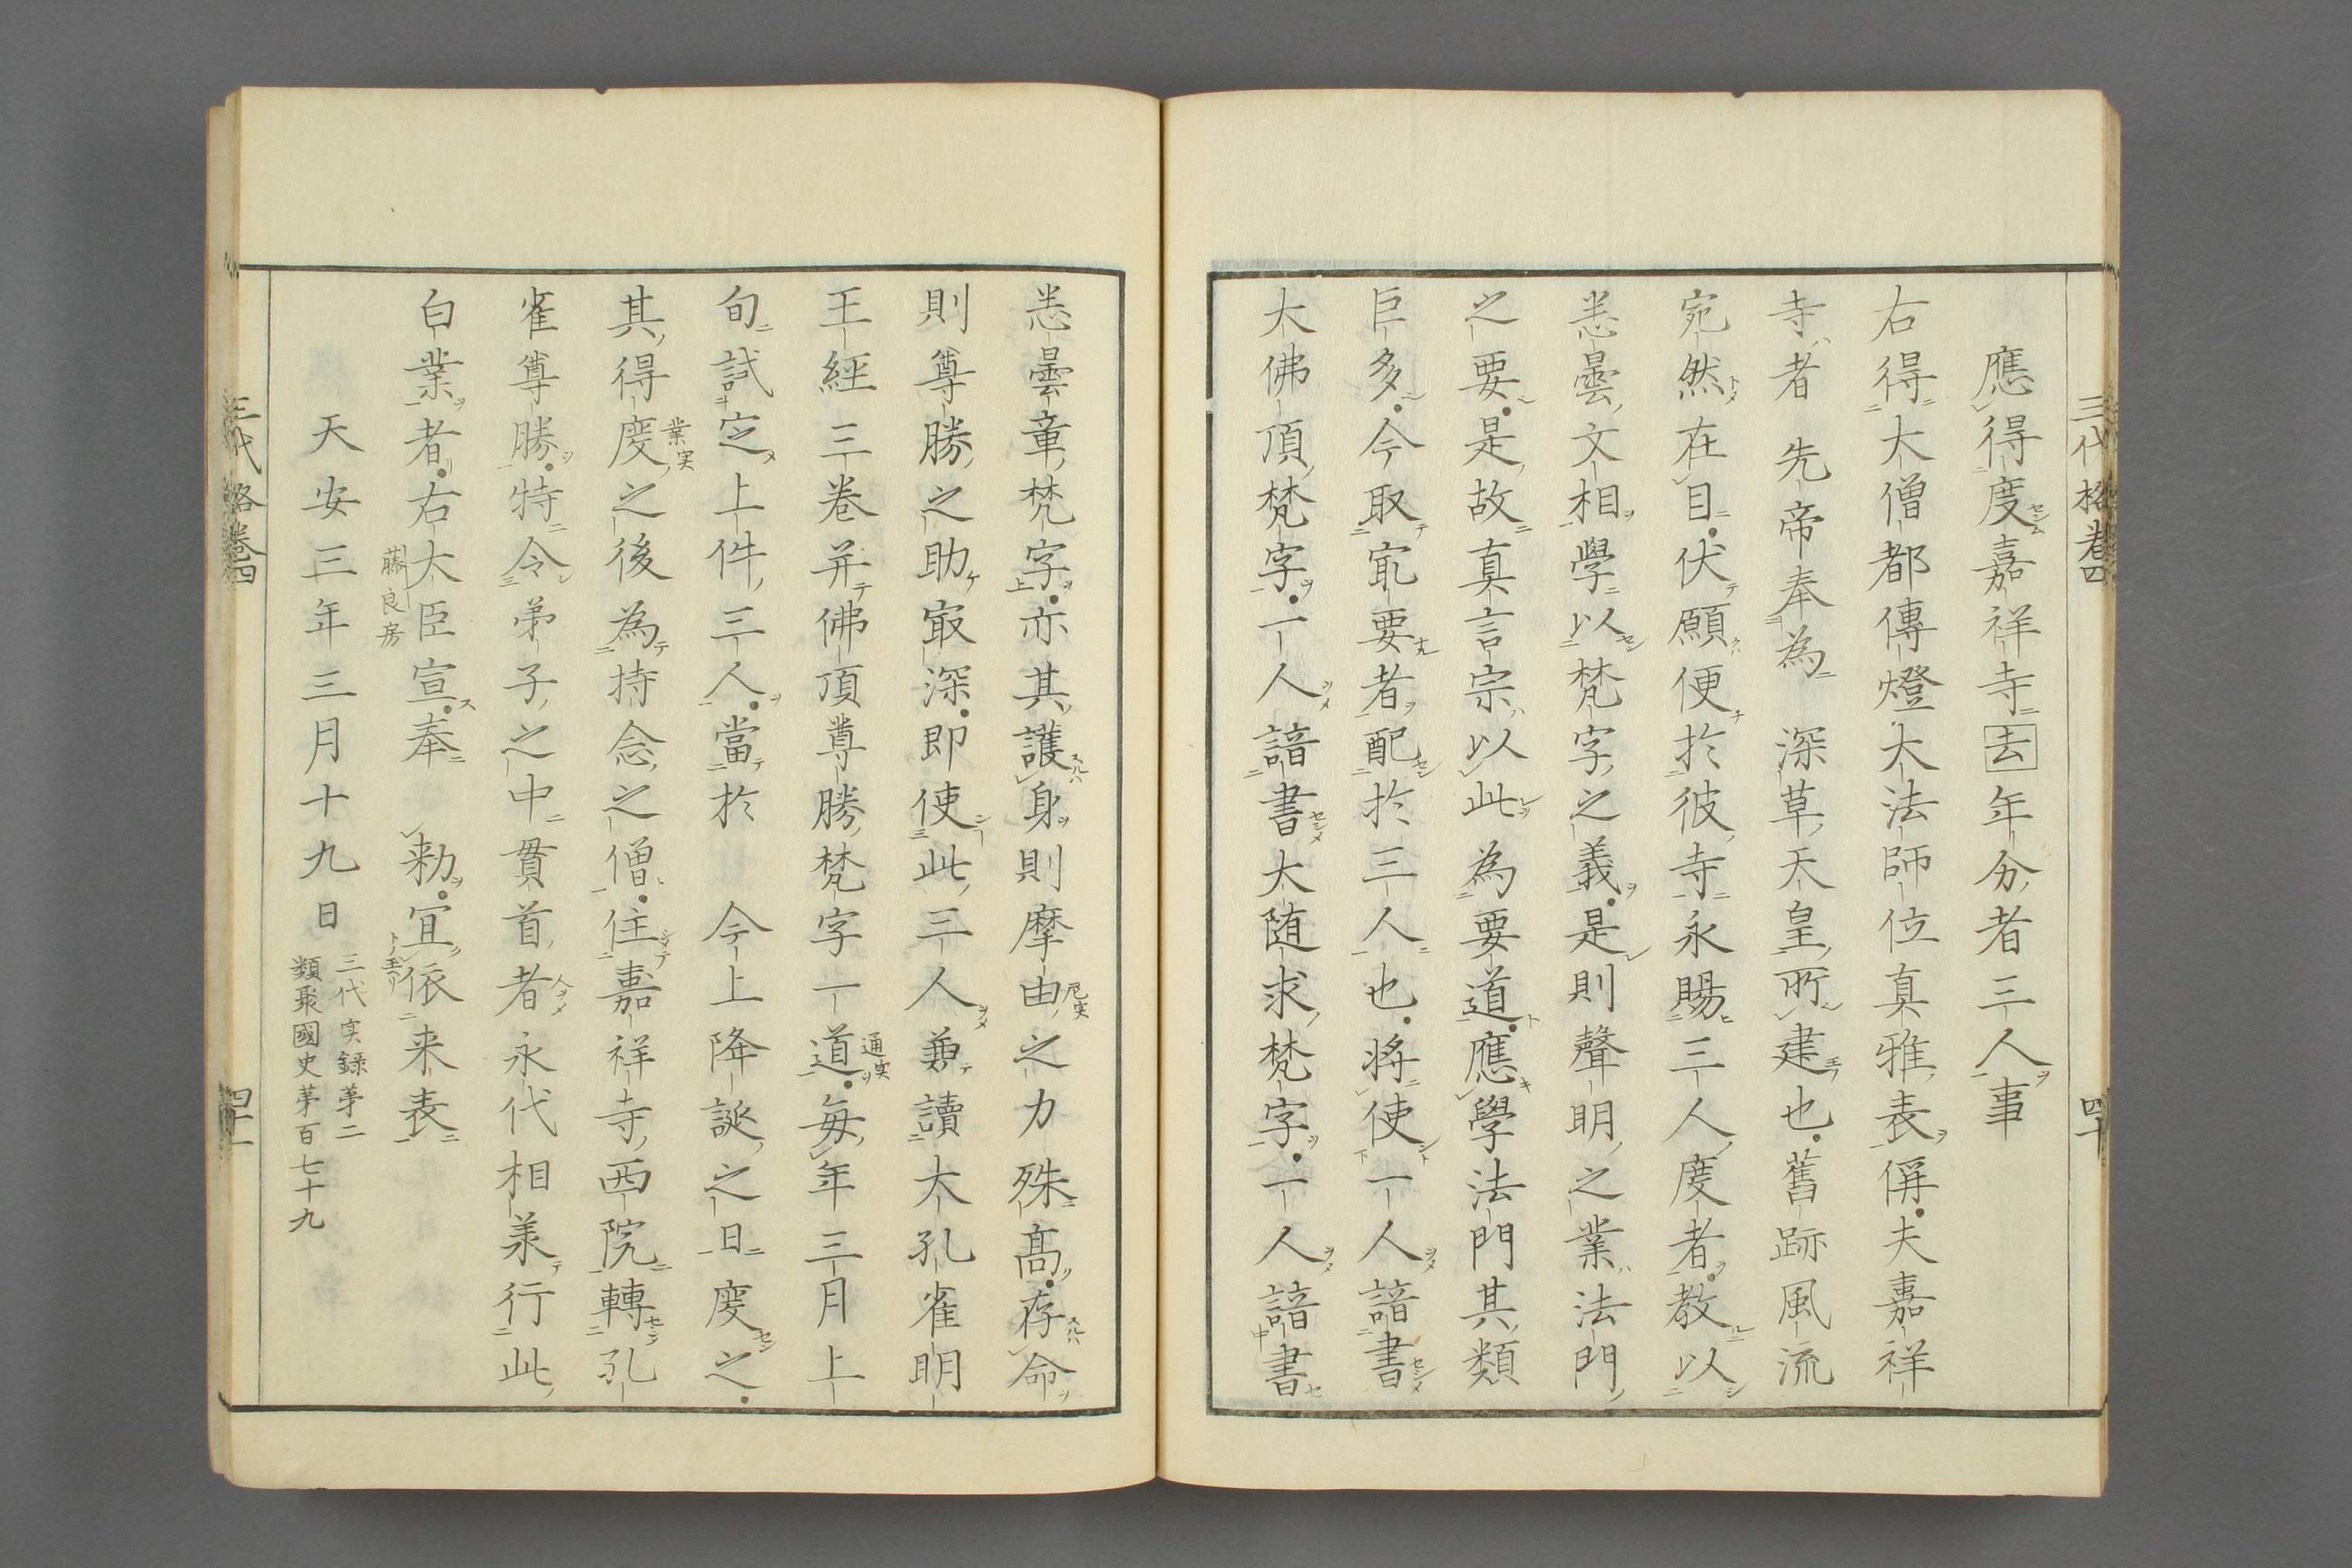 三代格卷四　四十
應得度嘉祥寺去年分者三人事
右得大僧都傳燈大法師位真雅表偁夫嘉祥
寺者　先帝奉為　深草天皇所建也舊跡風流
宛然在目伏願便於彼寺永賜三人度者教以
悉曇文相學以梵字之義是則聲明之業法門
之要是故真言宗以此為要道應學法門其類
巨多今取㝡要者配於三人也將使一人諳書
大佛頂梵字一人諳書大随求梵字一人諳書
悉曇章梵字亦其護身則摩由之力殊髙存命
則尊勝之助㝡深即使此三人兼讀大孔雀明
王經三卷并佛頂尊勝梵字一道每年三月上
通実
旬試定上件三人當於　今上降誕之日度之
其得度之後為持念之僧住嘉祥寺西院轉孔
業実
雀尊勝特令弟子之中貫首者永代相羕行此
白業者右大臣宣奉　勑宜依来表
藤良房
天安三年三月十九日
三代実録苐二
類聚國史苐百七十九
三代格卷四　四十一